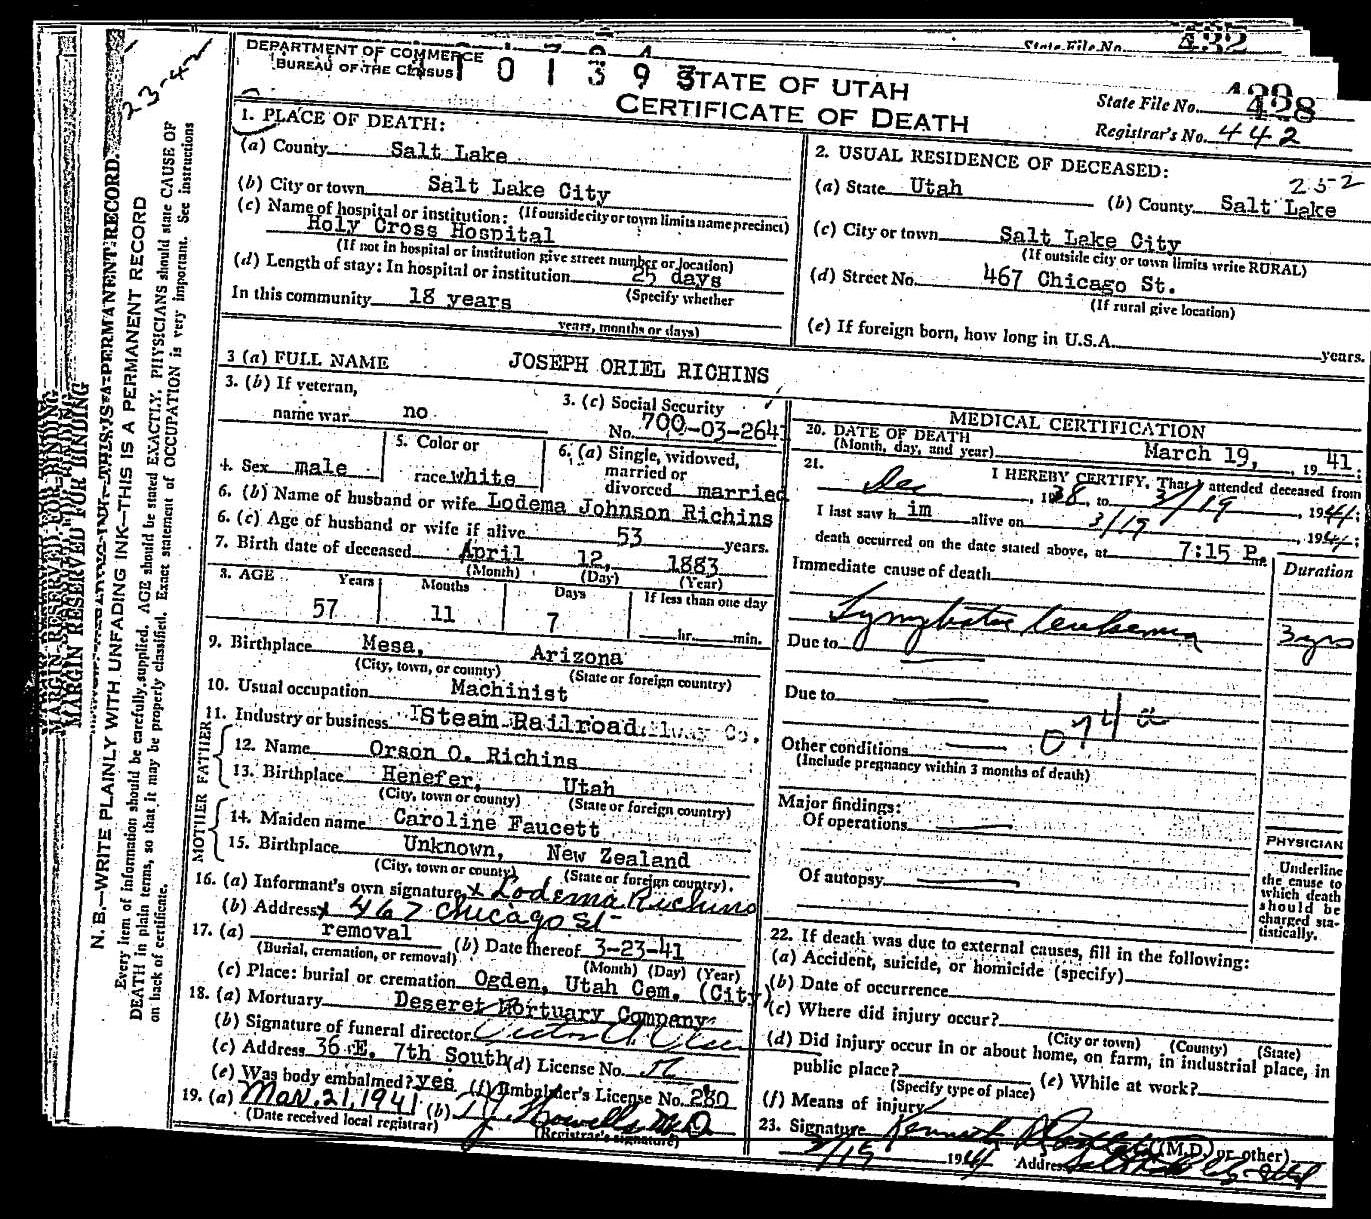 State File No. 432
DEPARTMENT OF COMMERCE
BUREAU OF THE CENSUS
STATE OF UTAH
CERTIFICATE OF DEATH
State File No. 428
Registrar's No. 442
23-42
1. PLACE OF DEATH:
(a) County Salt Lake
(b) City or town Salt Lake City
(If outside city or town limits name precinct)
(c) Name of hospital or institution:
Holy Cross Hospital
(If not in hospital or institution give street number or location)
(d) Length of stay: In hospital or institution 25 days
(Specify whether
In this community 18 years
years, months or days)
2. USUAL RESIDENCE OF DECEASED:
(a) State Utah (b) County Salt Lake
(c) City or town Salt Lake City
(If outside city or town limits write RURAL)
(d) Street No. 467 Chicago St.
(If rural give location)
(e) If foreign born, how long in U.S.A. years.
3 (a) FULL NAME JOSEPH ORIEL RICHINS
3. (b) If veteran,
name war no
3. (c) Social Security
No. 700-03-2641
4. Sex male
5. Color or
race white
6. (a) Single, widowed,
married or
divorced married
6. (b) Name of husband or wife Lodema Johnson Richins
6. (c) Age of husband or wife if alive 53 years.
7. Birth date of deceased April 12, 1883
(Month) (Day) (Year)
8. AGE Years Months Days If less than one day
57 11 7 hr. min.
9. Birthplace Mesa, Arizona
(City, town, or county) (State or foreign country)
10. Usual occupation Machinist
11. Industry or business Steam Railroad
FATHER
12. Name Orson O. Richins
13. Birthplace Henefer, Utah
(City, town or county) (State or foreign country)
MOTHER
14. Maiden name Caroline Faucett
15. Birthplace Unknown, New Zealand
(City, town or county) (State or foreign country).
16. (a) Informant's own signature x Lodema Richins
(b) Address x 467 Chicago St
17. (a) removal (b) Date thereof 3-23-41
(Burial, cremation, or removal) (Month) (Day) (Year)
(c) Place: burial or cremation Ogden, Utah Cem. (City)
18. (a) Mortuary Deseret Mortuary Company
(b) Signature of funeral director
(c) Address 36 E. 7th South (d) License No.
(e) Was body embalmed? yes (f) Embalmer's License No. 280
19. (a) Mar. 21, 1941 (b)
(Date received local registrar) (Registrar's signature)
MEDICAL CERTIFICATION
20. DATE OF DEATH
(Month, day, and year) March 19, 1941
21. I HEREBY CERTIFY, That I attended deceased from
Dec, 1938 to 3/19, 1941;
I last saw him alive on 3/19, 1941;
death occurred on the date stated above, at 7:15 P.m.
Immediate cause of death Duration
Lymphatic leukemia 3 yrs
Due to
Due to
074a
Other conditions
(Include pregnancy within 3 months of death)
Major findings:
Of operations
Of autopsy
PHYSICIAN
Underline
the cause to
which death
should be
charged sta-
tistically.
22. If death was due to external causes, fill in the following:
(a) Accident, suicide, or homicide (specify)
(b) Date of occurrence
(c) Where did injury occur?
(City or town) (County) (State)
(d) Did injury occur in or about home, on farm, in industrial place, in
public place? (e) While at work?
(Specify type of place)
(f) Means of injury
23. Signature Kenneth (M.D. or other)
3/19 1941 Address
MARGIN RESERVED FOR BINDING
N. B.—WRITE PLAINLY WITH UNFADING INK—THIS IS A PERMANENT RECORD
Every item of information should be carefully supplied. AGE should be stated EXACTLY. PHYSICIANS should state CAUSE OF
DEATH in plain terms, so that it may be properly classified. Exact statement of OCCUPATION is very important. See instructions
on back of certificate.